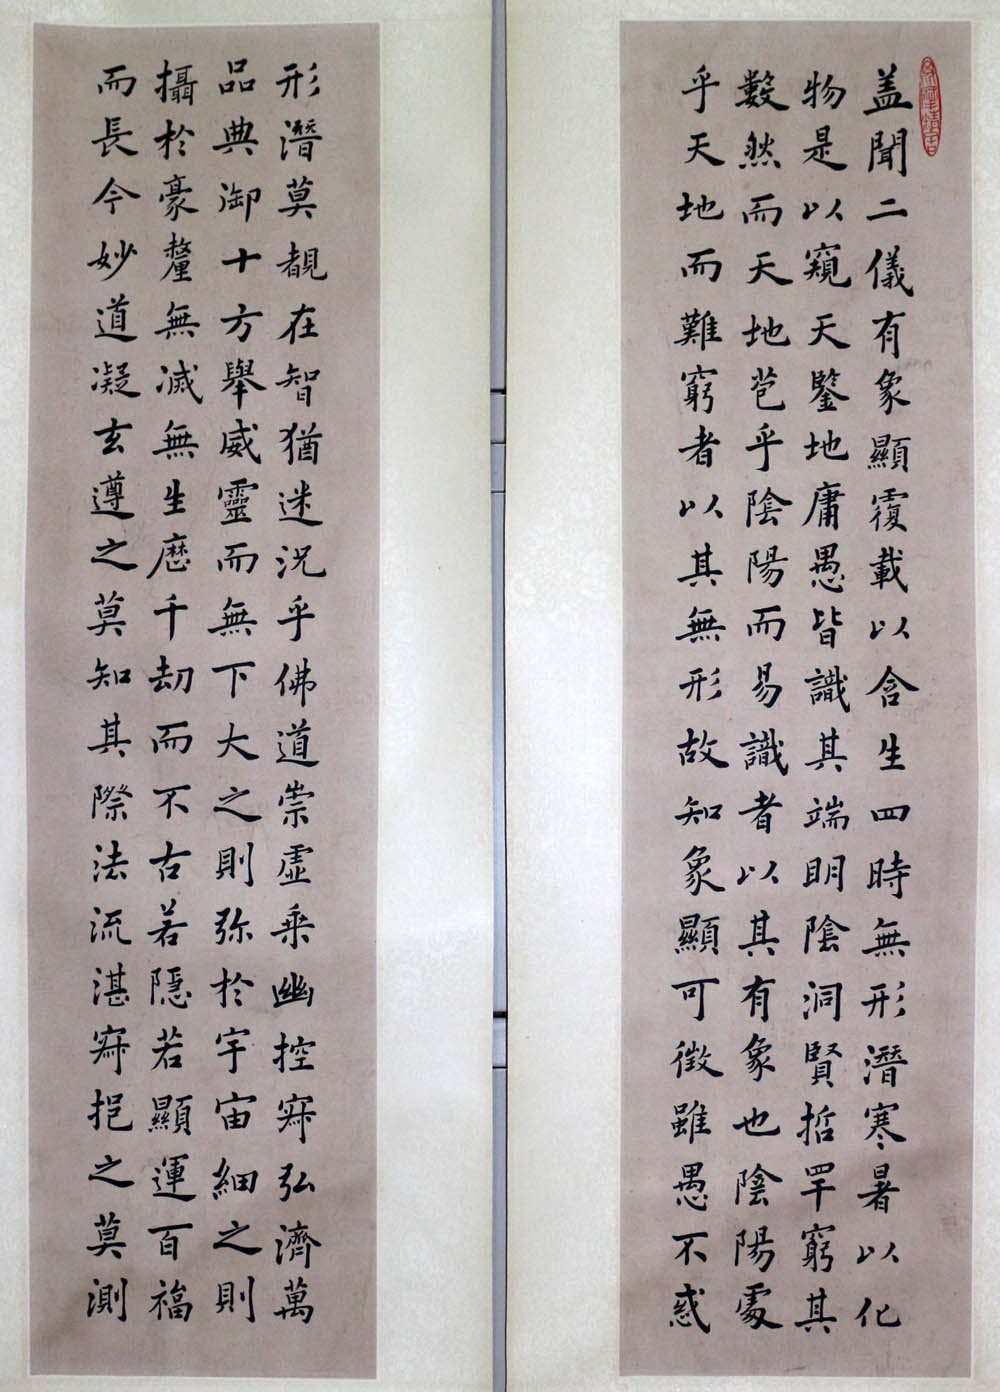 盖聞二儀有象顯覆載以含生四時無形潛寒暑以化
物是以窺天鑒地庸愚皆識其端明陰洞陽賢哲罕窮其
數然而天地苞乎陰陽而易識者以其有象也陰陽處
乎天地而難窮者以其無形故知象顯可徵雖愚不惑
形潛莫覩在智猶迷況乎佛道崇虛乘幽控寂弘濟萬
品典御十方舉威靈而無下大之則弥於宇宙細之則
攝於豪釐無滅無生歷千劫而不古若隱若顯運百福
而長今妙道凝玄遵之莫知其際法流湛寂挹之莫測